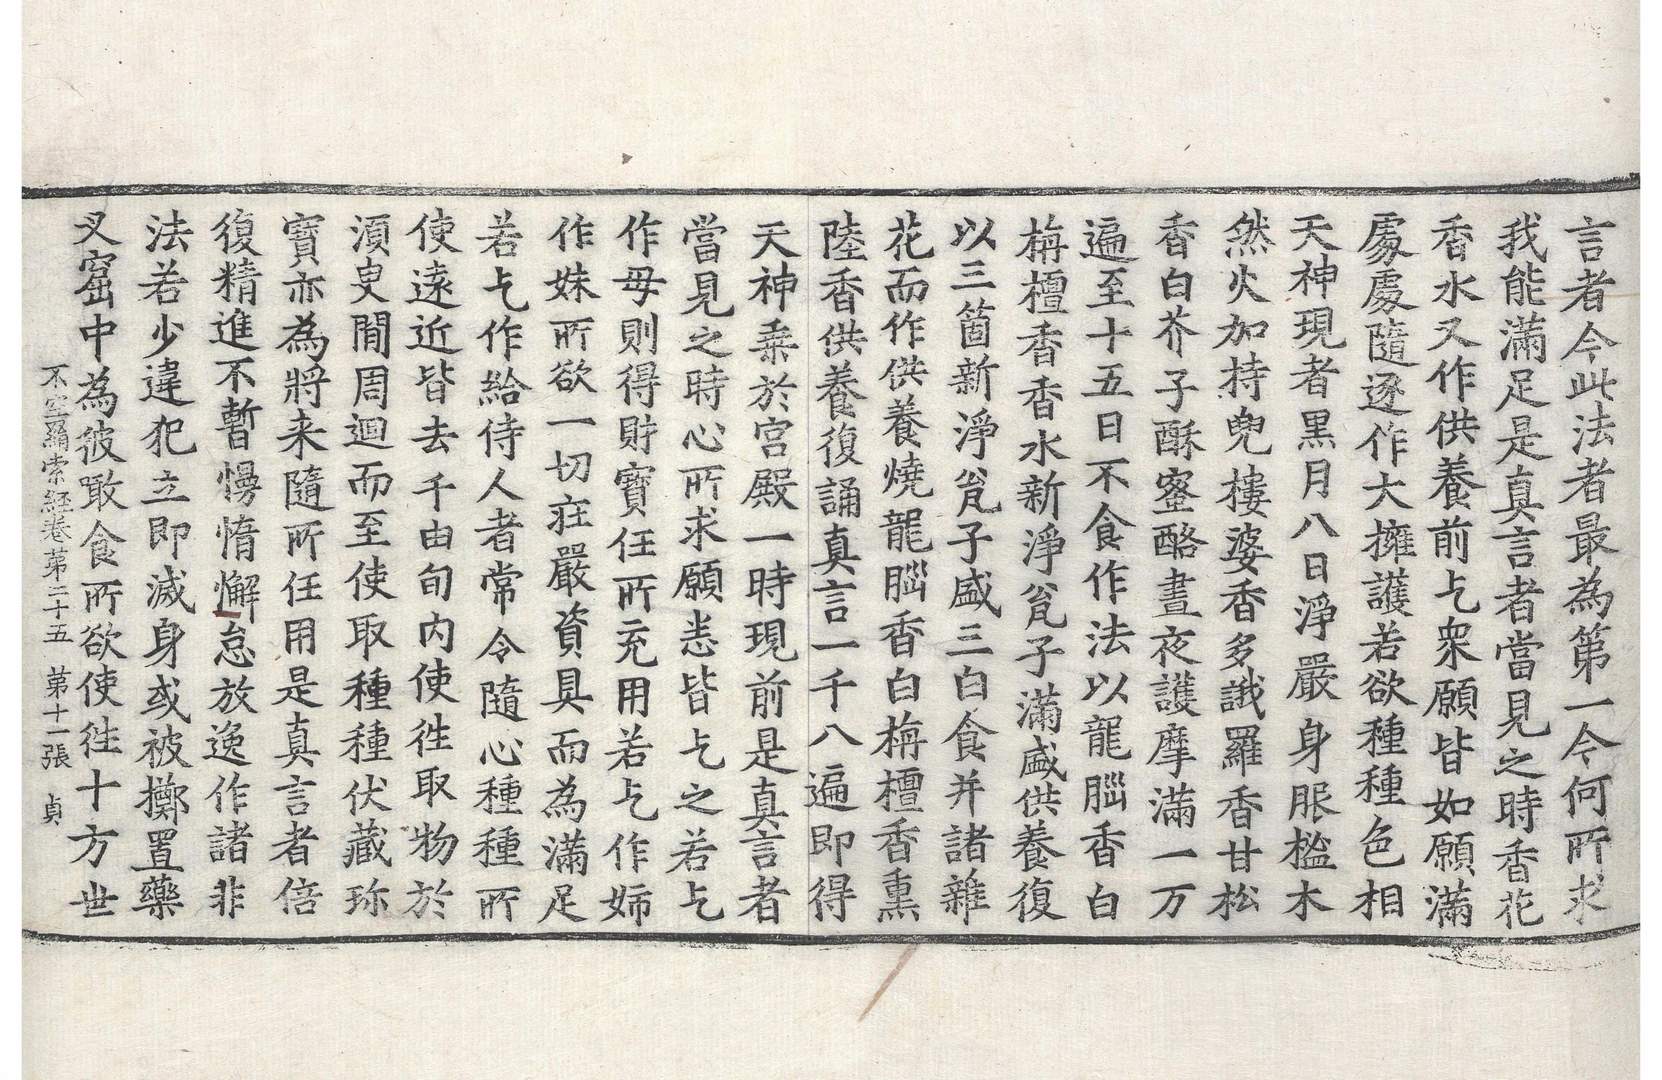 言者今此法者最為第一今何所求
我能滿足是真言者當見之時香花
香水又作供養前乞眾願皆如願滿
處處隨逐作大擁護若欲種種色相
天神現者黑月八日淨嚴身服檻木
然火加持兜樓婆香多誐羅香甘松
香白芥子酥蜜酪晝夜護摩滿一万
遍至十五日不食作法以龍腦香白
栴檀香香水新淨瓫子滿盛供養復
以三箇新淨瓫子盛三白食并諸雜
花而作供養燒龍腦香白栴檀香熏
陸香供養復誦真言一千八遍即得
天神乘於宮殿一時現前是真言者
當見之時心所求願恙皆乞之若乞
作母則得財寶任所充用若乞作婦
作妹所欲一切莊嚴資具而為滿足
若乞作給侍人者常令隨心種種所
使遠近皆去千由旬內使徃取物於
須臾間周迴而至使取種種伏藏珎
寶亦為將来隨所任用是真言者倍
復精進不暫慢惰懈怠放逸作諸非
法若少違犯立即滅身或被擲置藥
叉窟中為彼噉食所欲使徃十方世
不空羂索經卷第二十五　第十一張　貞